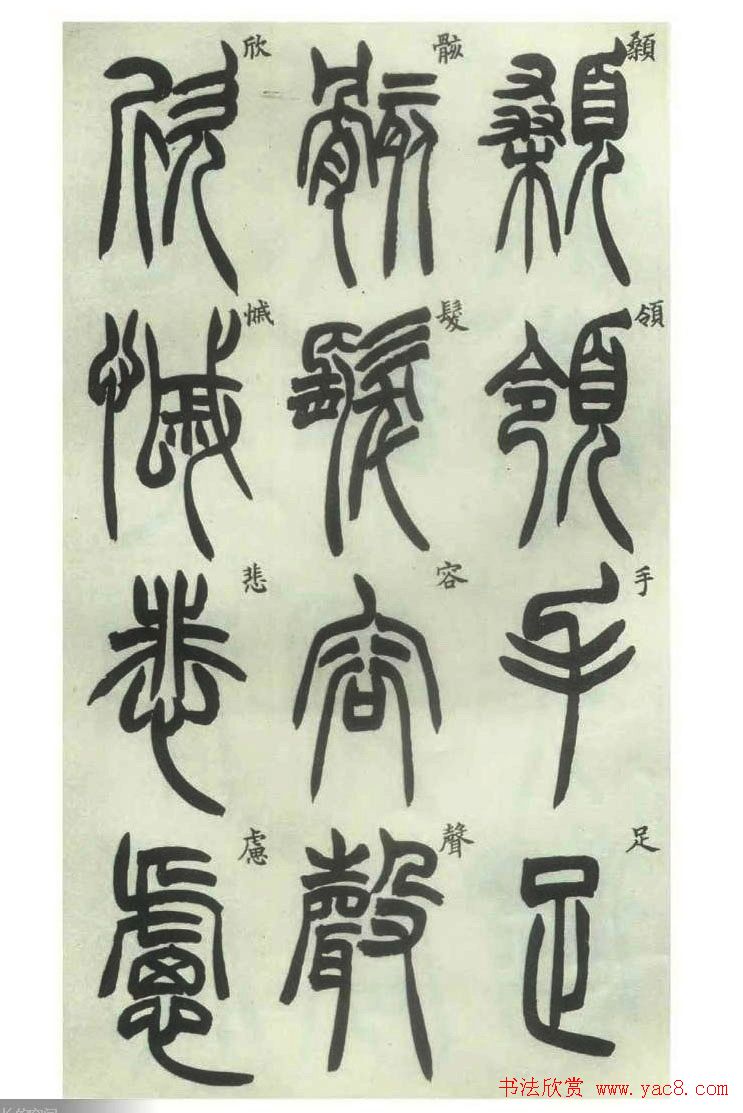 顙領手足
骸髮容聲
欣慽悲慮
书法欣赏 www.yac8.com